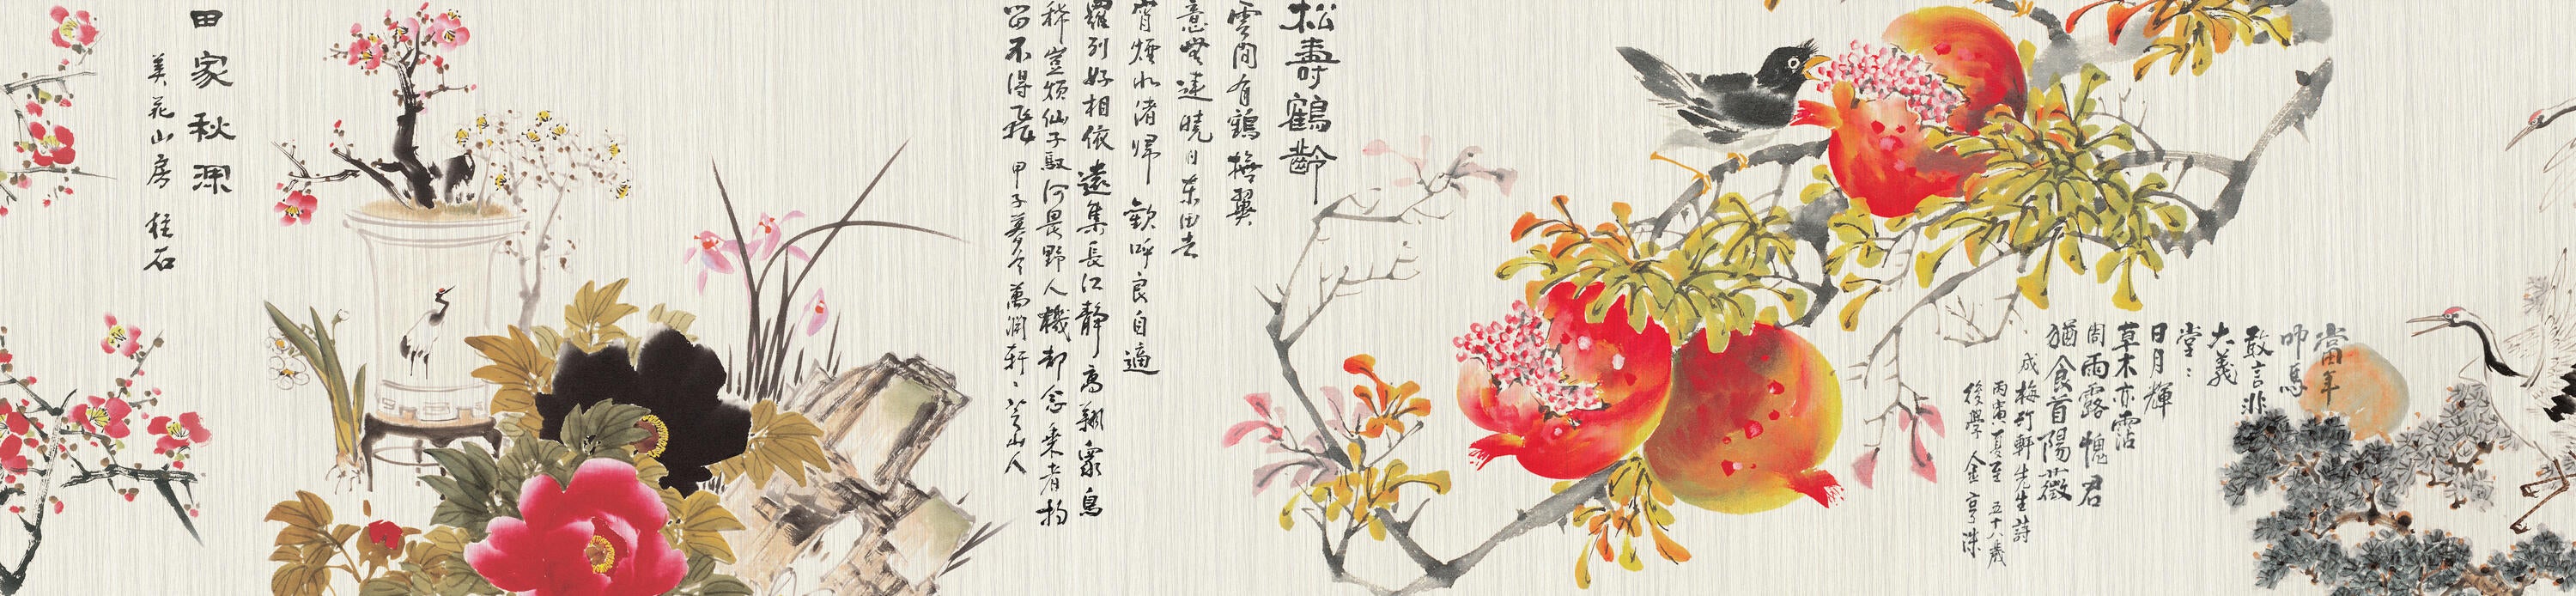 當年
叩馬
敢言非
大義
堂：
日月輝
草木亦霑
周雨露愧君
猶食首陽薇
成梅竹軒先生詩
丙寅夏至 五十八歲
後學 人金亨洙
松壽鶴齡
雲間有鶴撫翼
意無違曉日東田去
宵煙水渚歸 歡呼良自適
羅列好相依遠集長江靜高翔衆鳥
稀豈煩仙子馭何畏野人機却念乘者拘
留不得飛 甲子暮冬萬淵軒 山人
田家秋深
美花山房 桂石